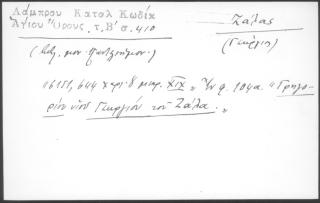 Λάμπρου Καταλ Κωδίκ
Ἁγίου Ὄρους, τ. Β' σ. 410
Ζάλας
(Γεώργιος)
(Ἁγ. μον. Παντελεήμον.)
"6151, 644 χφ. 8 μικρ. XIX = Ἐν φ. 104α. "Γρηγο-
ρίου υἱοῦ Γεωργίου τοῦ Ζάλα."